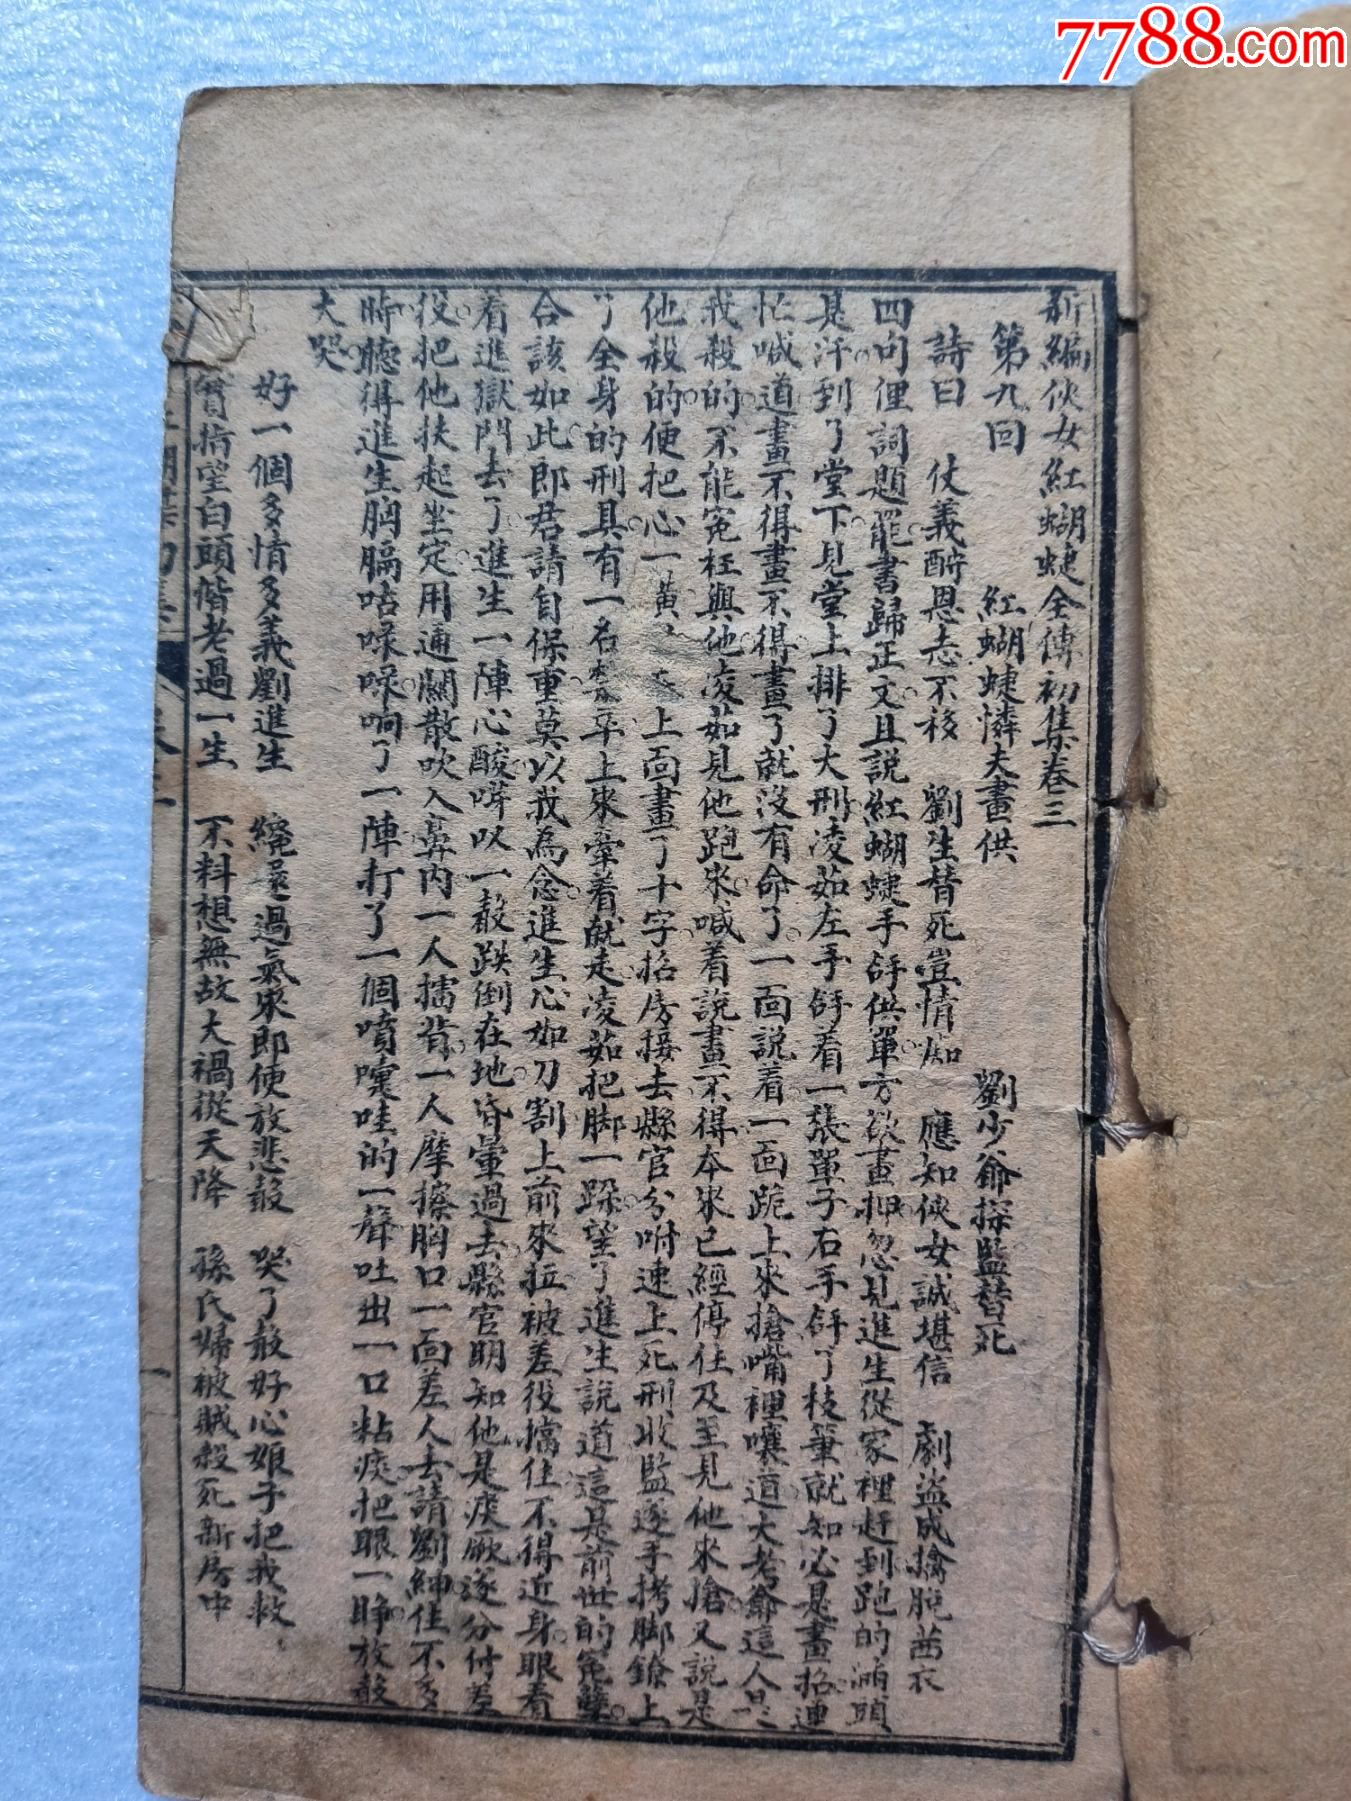 7788.com
新編俠女紅蝴蝶全傳初集卷三
第九回 紅蝴蝶憐夫畫供 劉少爺探監替死
詩曰 仗義酧恩志不移 劉生替死豈情痴 應知俠女誠堪信 劇盜成擒脫茜衣
四句俚詞題罷書歸正文且說紅蝴蝶手舒供單方欲畫押忽見進生從家裡赶到跑的滿頭
是汗到了堂下見堂上排了大刑凌茹左手舒着一張單子右手舒了枝筆就知必是畫招連
忙喊道畫不得畫不得畫了就沒有命了一面說着一面跪上來搶嘴裡嚷道大老爺這人是
我殺的不能寃枉與他凌茹見他跑來喊着說畫不得本來已經停住及至見他來搶又說是
他殺的便把心一黄上面畫了十字招房接去縣官分咐速上死刑收監遂手拷脚鐐上
了全身的刑具有一名禁卒上來牽着就走凌茹把脚一跺望了進生說道這是前世的寃孽
合該如此郎君請自保重莫以我為念進生心如刀割上前來拉被差役攩住不得近身眼看
着進獄門去了進生一陣心酸嗐以一聲跌倒在地昏暈過去縣官明知他是痰厥遂分付差
役把他扶起坐定用通關散吹入鼻內一人擂背一人摩擦胸口一面差人去請劉紳住不多
時聽得進生胸膈咕㖨㖨响了一陣打了一個噴嚏哇的一聲吐出一口粘痰把眼一睁放聲
大哭
好一個多情多義劉進生 纔還過氣來即便放悲聲 哭了聲好心娘子把我救
實指望白頭偕老過一生 不料想無故大禍從天降 孫氏婦被賊殺死新房中